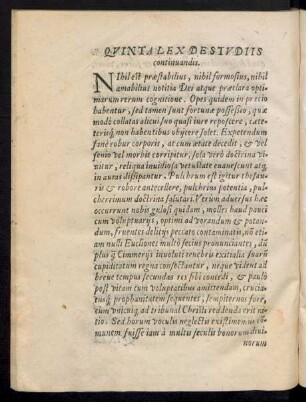 QVINTA LEX DE STVDIIS
continuandis.
NIhil est præstabilius, nihil formosius, nihil
amabilius notitia Dei atque præclara opti-
marum rerum cognitione. Opes quidem in precio
habentur, sed tamen sunt fortunæ possessio, quæ
modò collatas alicui suo quasi iure reposcere, cæte-
risq́; non habentibus obijcere solet. Expetendum
sanè robur corporis, at cum ætate decedit, & vel
senio vel morbis corripitur, sola verò doctrina vi-
nitur, reliqua inuidiosa vetustate euanescunt atq́;
in auras dissipantur. Pulchrum est igitur thesau-
ris & robore antecellere, pulchrius potentia, pul-
cherrimum doctrina salutari. Verùm aduersus hæc
occurrent nobis gulosi quidam, molles haud pauci
cum voluptuarys, optimi ad vorandum & potan-
dum, fruentes delitijs peccato contaminatis, nõ eti-
am nulli Eucliones multò seciùs pronunciantes, dũ
plus q̃ Cimmerijs inuoluti tenebris exitialis suarũ
cupiditatum regna consectantur, neque vident ad
breue tempus secundas res sibi contedi, & paulò
post vitam cum voluptatibus amittendam, crucia-
tusq́; prophanitatem sequentes, sempiternos fore,
cum vnicuiq; ad tribunal Christi reddenda erit ra-
tio. Sed horum vocula neglectis existimemus
munem fuisse iam à multis seculis bonorum diui-
norum